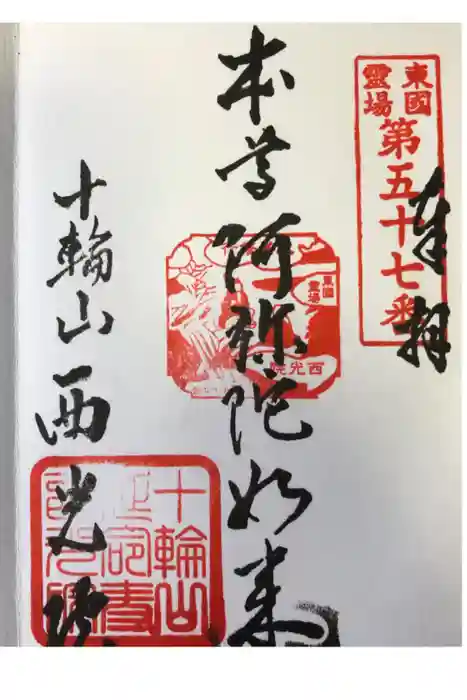 東國
靈場
第五十七番
奉拝
本尊阿弥陀如来
東國
靈場
西光院
十輪山西光院
十輪山